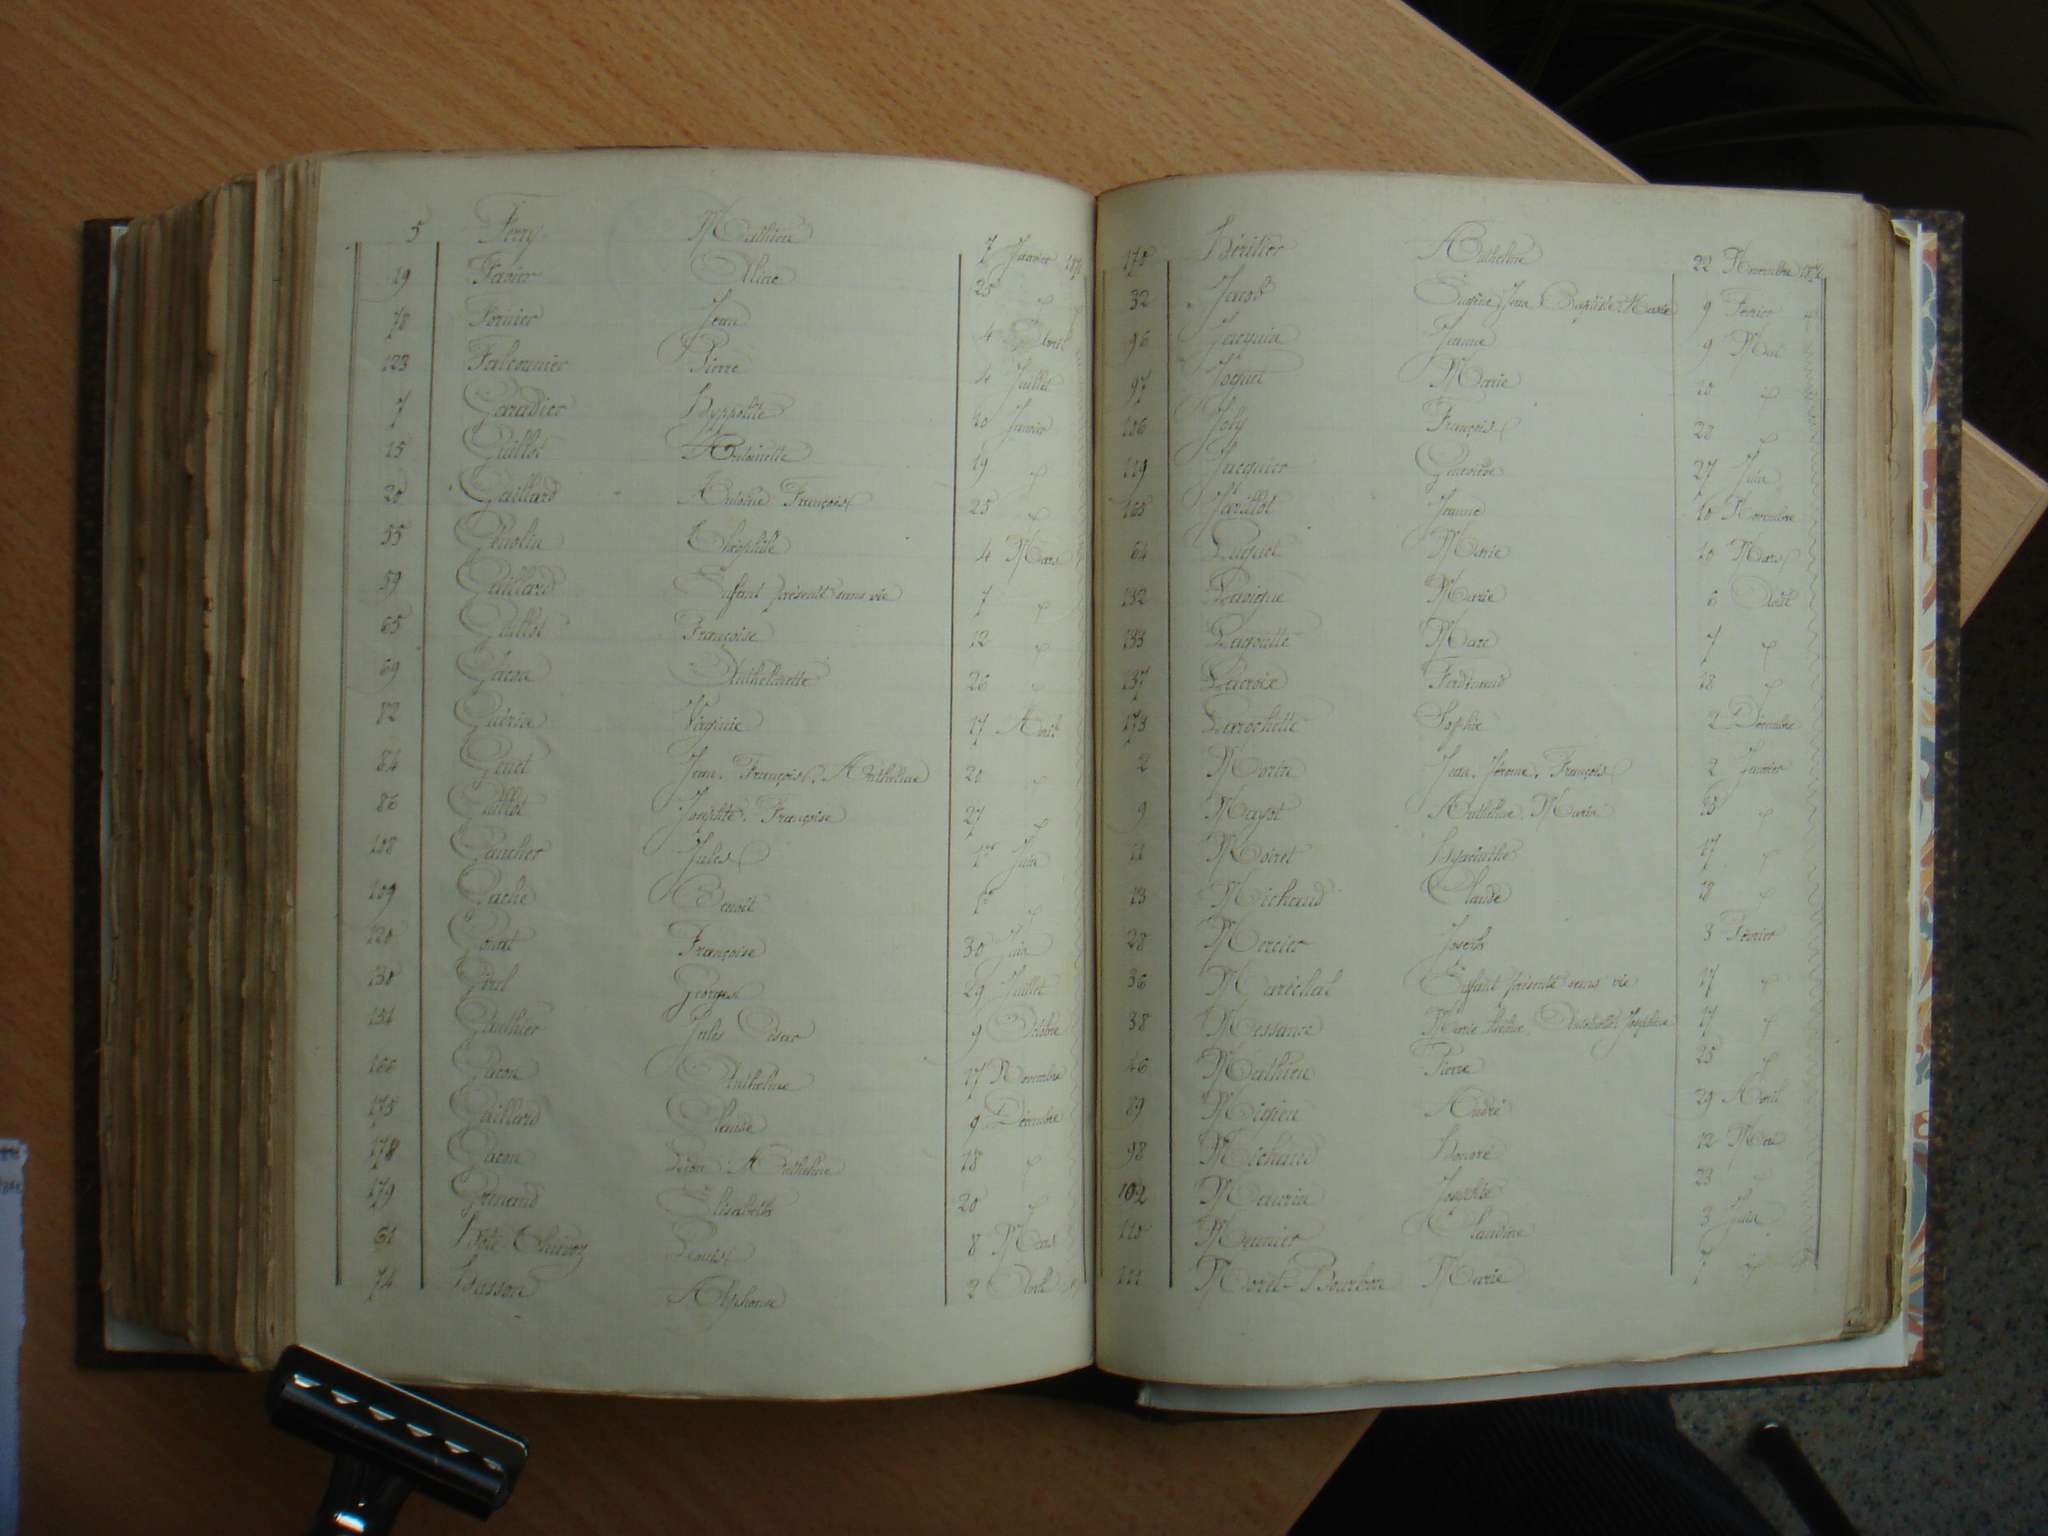 5 Ferry Mathieu 7 Janvier
19 Favier Aline 25 "
78 Fornier Jean 4 Avril
123 Falconnier Pierre 4 Juillet
7 Garadier Hyppolite 10 Janvier
15 Guillot Antoinette 19 "
20 Gaillard Antoine François 25 "
55 Théophile 4 Mars
59 Gaillard Enfant présenté sans vie 7 "
65 Guillot Françoise 12 "
69 Anthelmette 26 "
82 Virginie 17 Avril
84 Genet Jean François Anthelme 20 "
86 Guillot Josephte Françoise 27 "
108 Gaucher Jules 1er Juin
109 Gache Benoit 1er "
120 Françoise 30 Juin
130 Girel Georges 29 Juillet
154 Gauthier Jules César 9 Octobre
166 Gacon Anthelme 17 Novembre
175 Gaillard Claude 9 Décembre
178 Gacon Anthelme 18 "
179 Elisabeth 20 "
61 Louis 8 Mars
74 Husson Alphonse 2 Avril
170 Héritier Anthelme 22 Novembre
32 Jacob Eugène Jean Baptiste Marie 9 Février
96 Jacquin Jeanne 9 Mai
97 Joquet Marie 10 "
106 Joly François 28 "
119 Jacquier Geneviève 27 Juin
165 Javillot Jeanne 16 Novembre
64 Luquet Marie 10 Mars
132 Lavigne Marie 6 Août
133 Lagoutte Marc 7 "
137 Lacroix Ferdinand 18 "
173 Larrochette Sophie 2 Décembre
2 Morin Jean Jérome François 2 Janvier
9 Mayot Anthelme Marie 13 "
11 Moiret Hyacinthe 17 "
13 Michaud Claude 18 "
28 Mercier Joseph 3 Février
36 Maréchal Enfant présenté sans vie 17 "
38 Messance Marie Joséphine 17 "
46 Mathieu Pierre 25 "
89 Migieu André 29 Avril
98 Michaud Honoré 12 Mai
102 Maurin Josephte 23 "
110 Meunier Claudine 3 Juin
111 Moret-Bourbon Marie 7 "